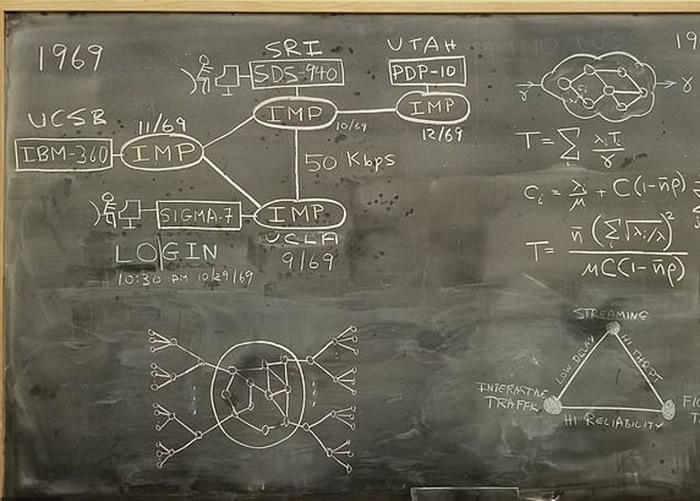 1969
SRI
SDS-940
IMP
10/69
UTAH
PDP-10
IMP
12/69
UCSB
11/69
IBM-360
IMP
50 Kbps
SIGMA-7
IMP
UCLA
9/69
LO|GIN
10:30 PM 10/29/69
19
γ
γ
T = Σ λᵢTᵢ / γ
Cᵢ = λᵢ/μ + C(1-n̄ρ)
T = n̄ (Σ √λᵢ/λ)² / μC(1-n̄ρ)
STREAMING
LOW DELAY
HI THRPT
INTERACTIVE
TRAFFIC
HI RELIABILITY